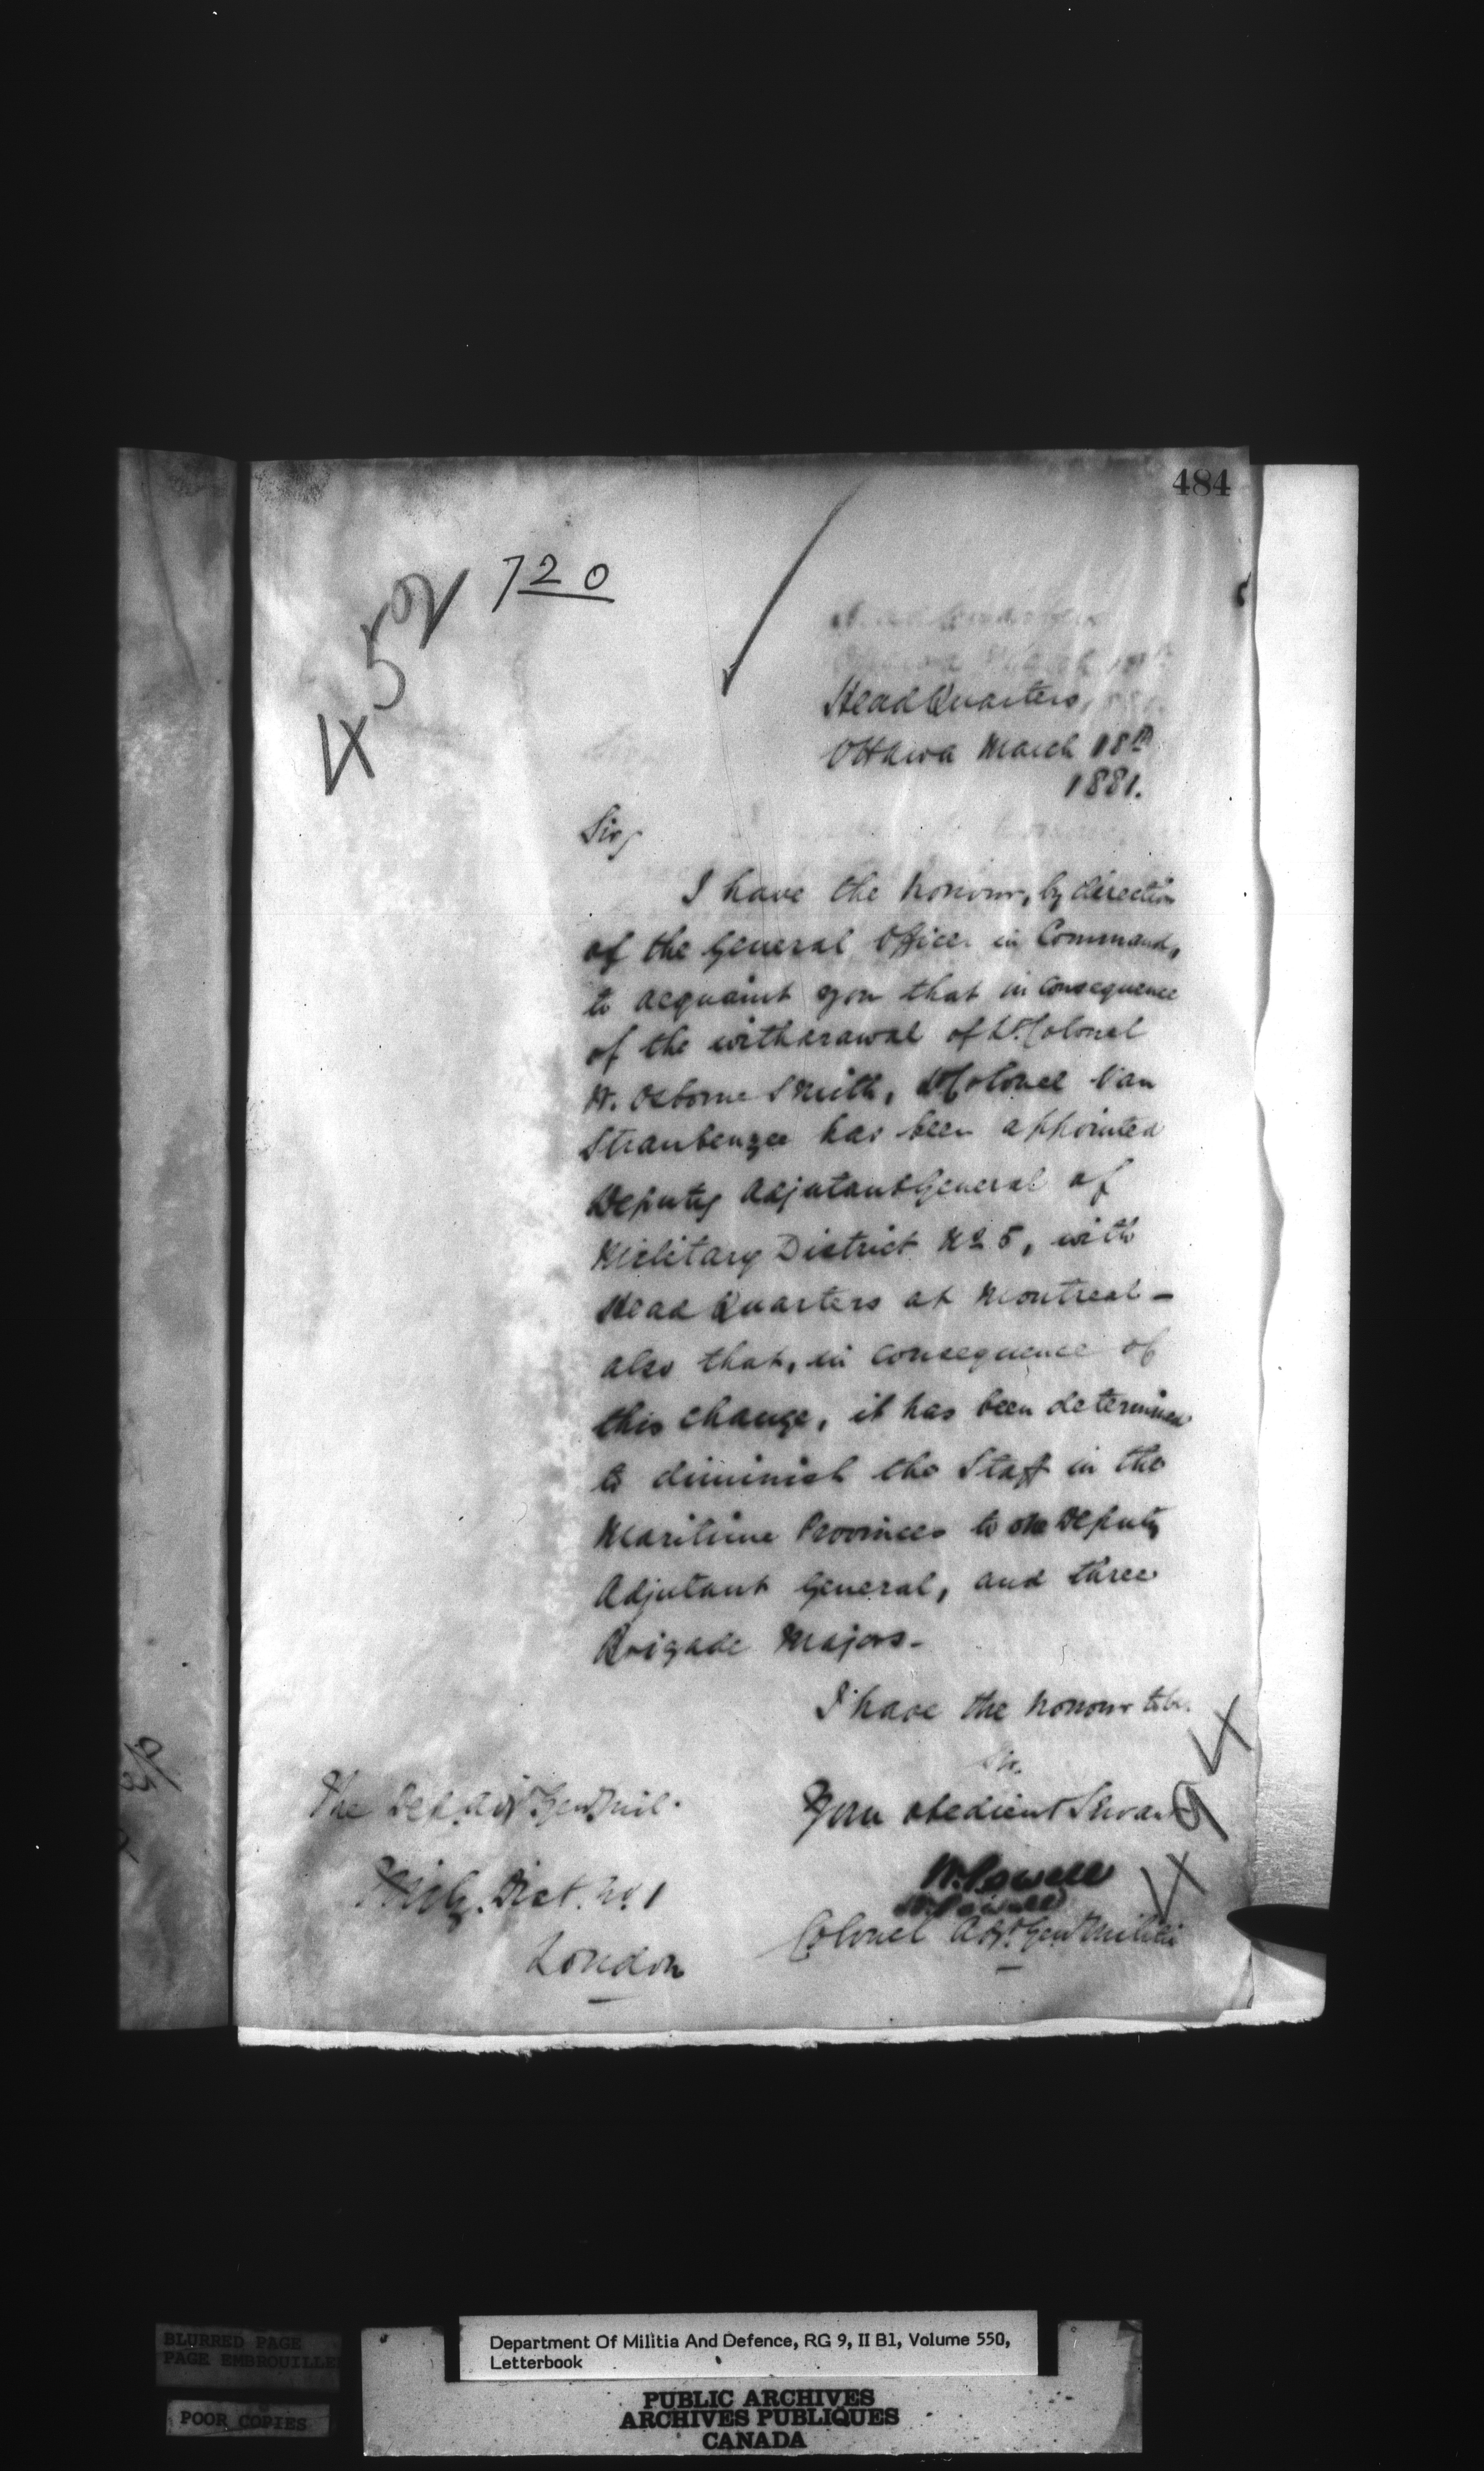 484
720
Head Quarters,
Ottawa March 18th
1881.
Sir,
I have the honour, by direction
of the General Officer in Command,
to acquaint you that in consequence
of the withdrawal of Lt. Colonel
W. Osborne Smith, Lt Colonel Van
Straubenzee has been appointed
Deputy Adjutant General of
Military District No 5, with
Head Quarters at Montreal -
also that, in consequence of
this change, it has been determined
to diminish the Staff in the
Maritime Provinces to one Deputy
Adjutant General, and three
Brigade Majors -
I have the honour to be
Sir.
Your obedient Servant
W. Powell
W. Powell
Colonel Adjt. Genl Militia
The Dep. Adjt Genl Mil.
Mily. Dist. No. 1
London
BLURRED PAGE
PAGE EMBROUILLE
POOR COPIES
Department Of Militia And Defence, RG 9, II B1, Volume 550,
Letterbook
PUBLIC ARCHIVES
ARCHIVES PUBLIQUES
CANADA